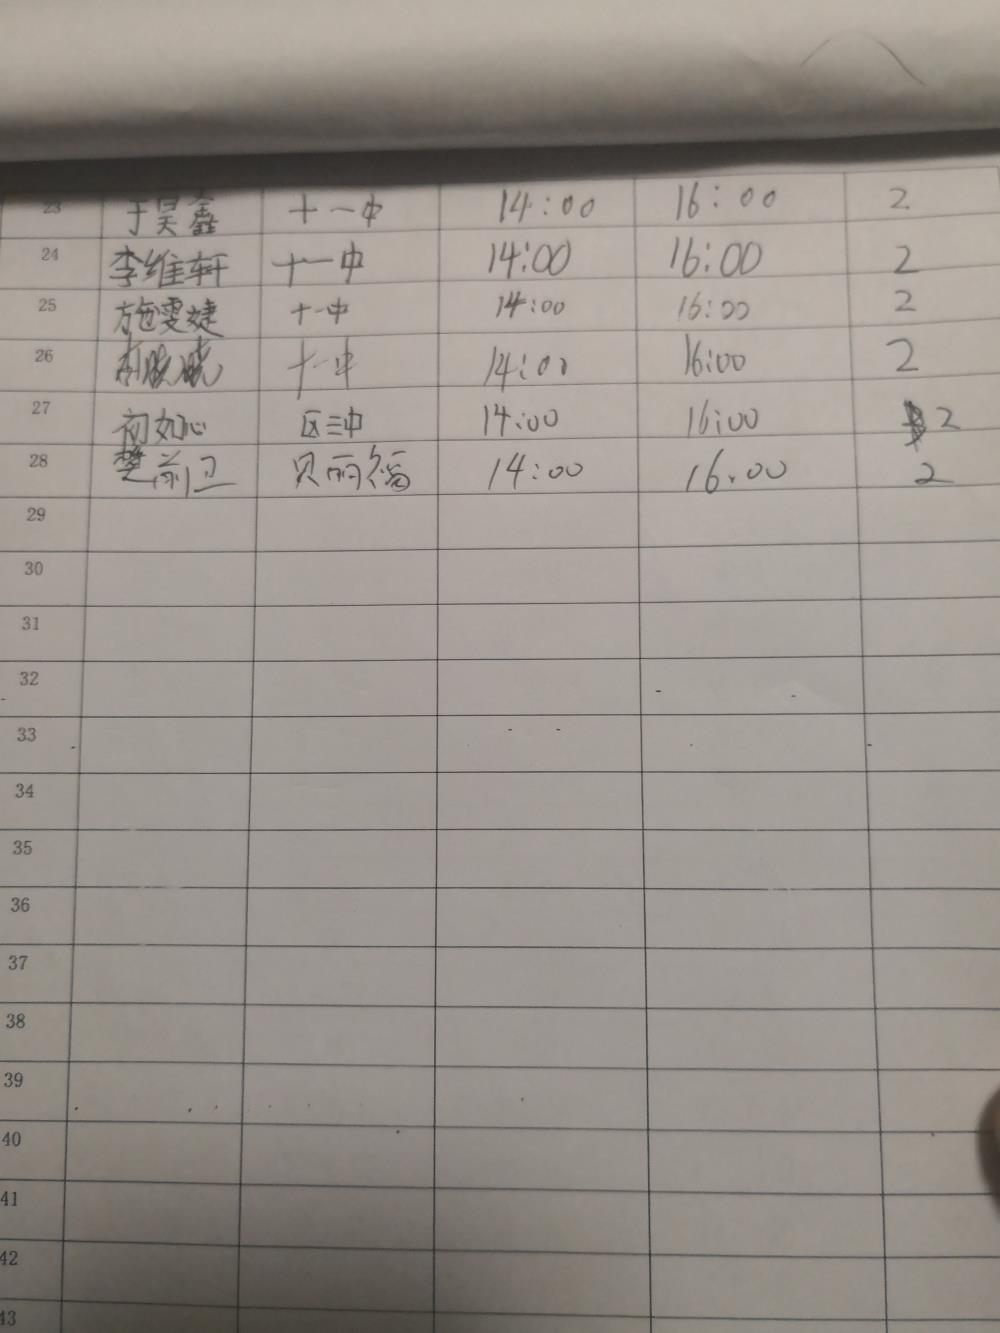 23 于昊鑫 十一中 14:00 16:00 2
24 李维轩 十一中 14:00 16:00 2
25 施雯婕 十一中 14:00 16:00 2
26 晓晓 十一中 14:00 16:00 2
27 初如心 区三中 14:00 16:00 2
28 楚前卫 贝丽福 14:00 16:00 2
29
30
31
32
33
34
35
36
37
38
39
40
41
42
43